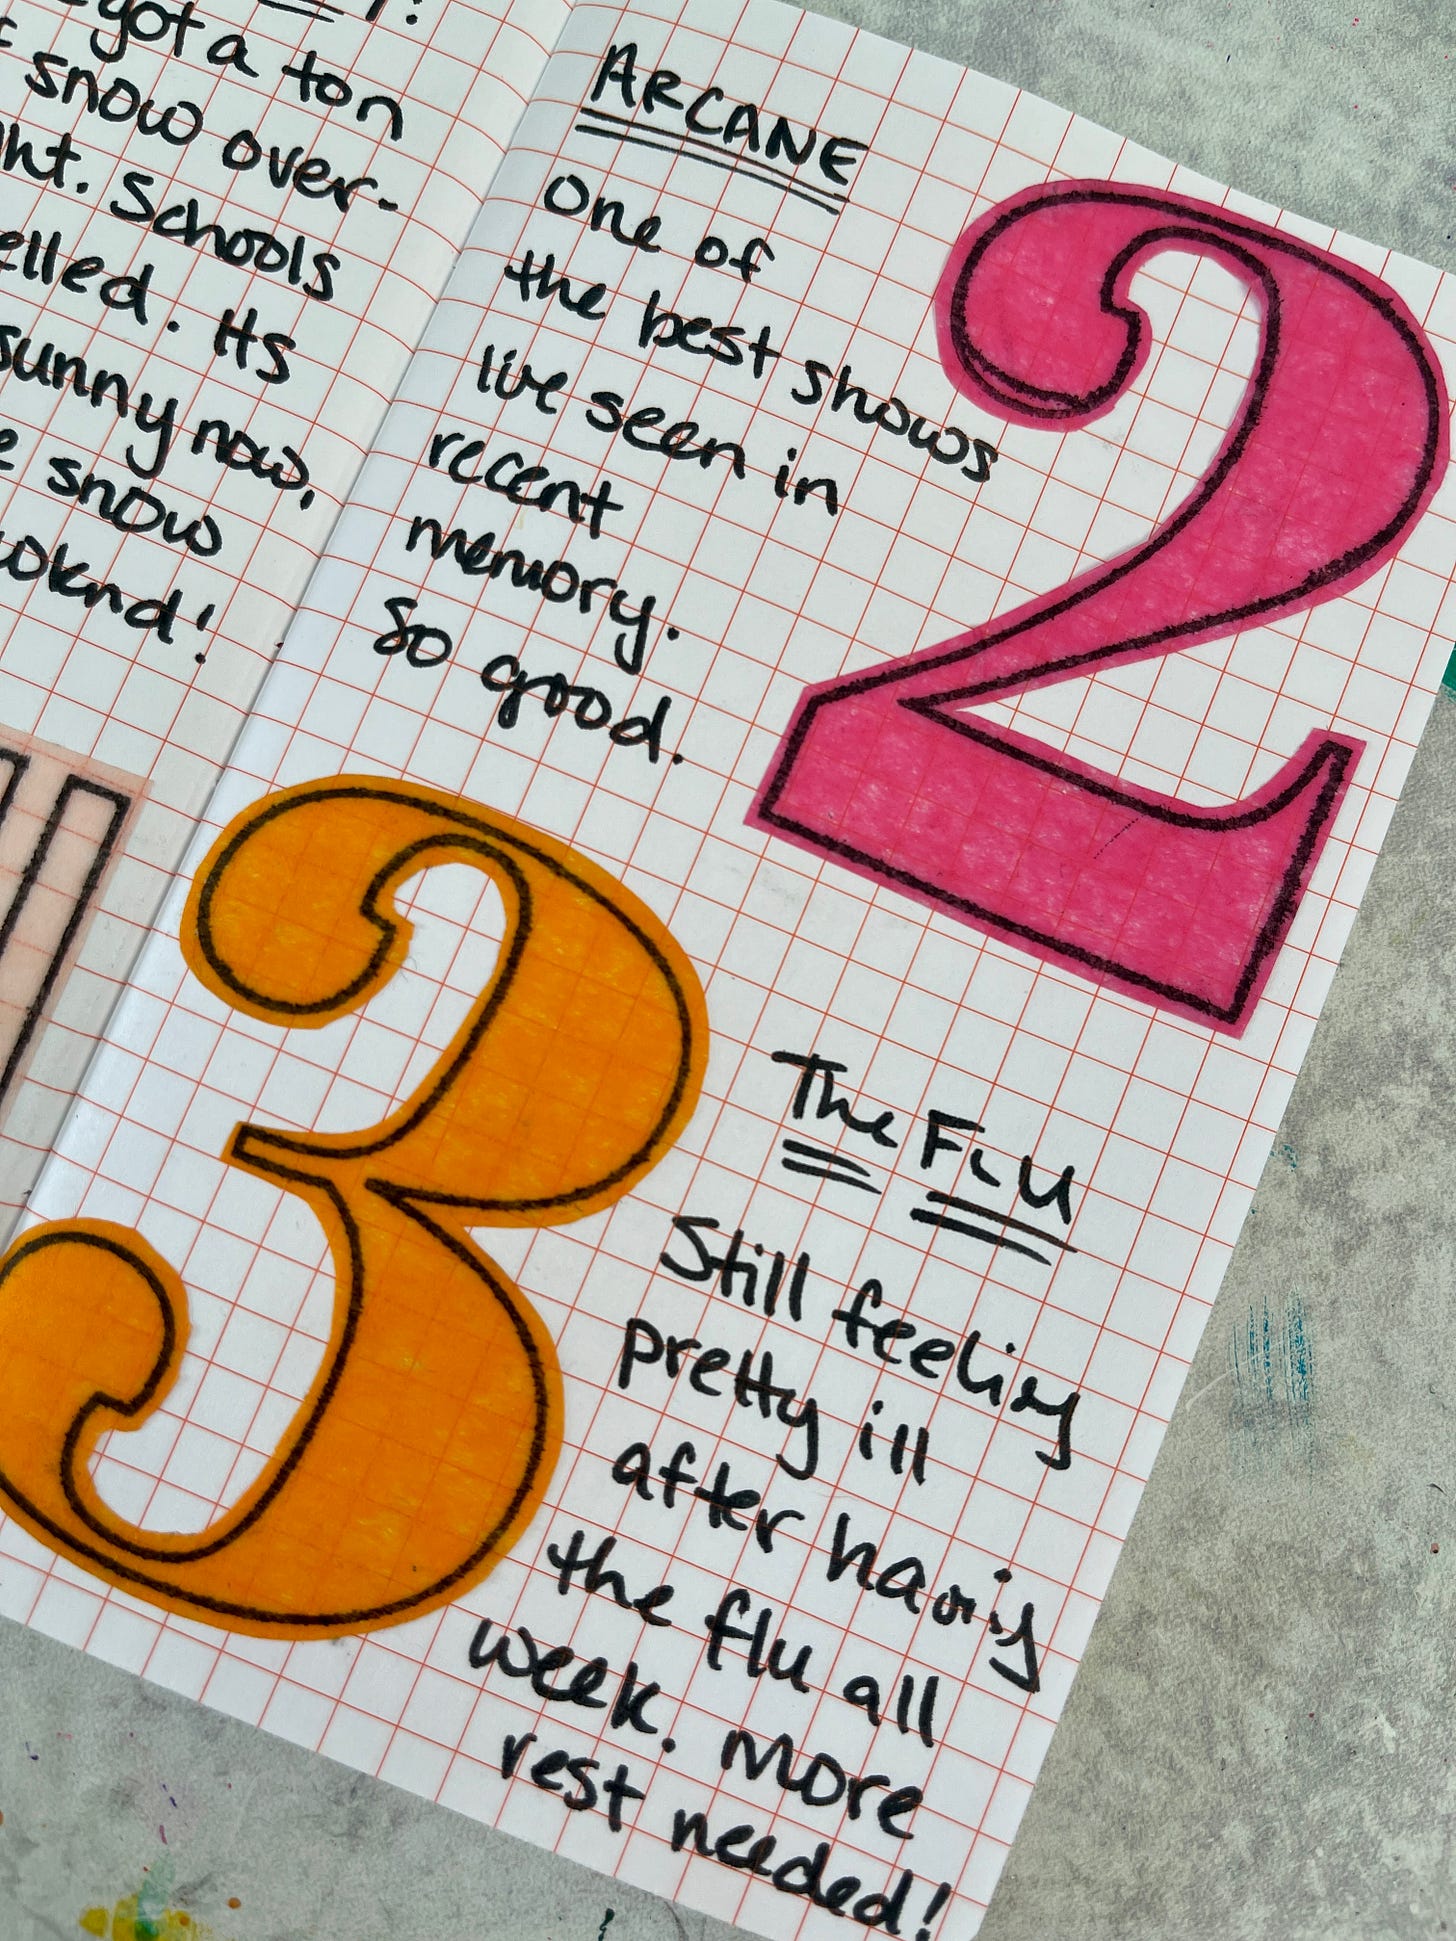 got a ton
snow over-
. Schools
. Its
sunny now,
snow
!
ARCANE
2
One of
the best shows
I've seen in
recent
memory.
So good.
3
The FLU
Still feeling
pretty ill
after having
the flu all
week. More
rest needed!